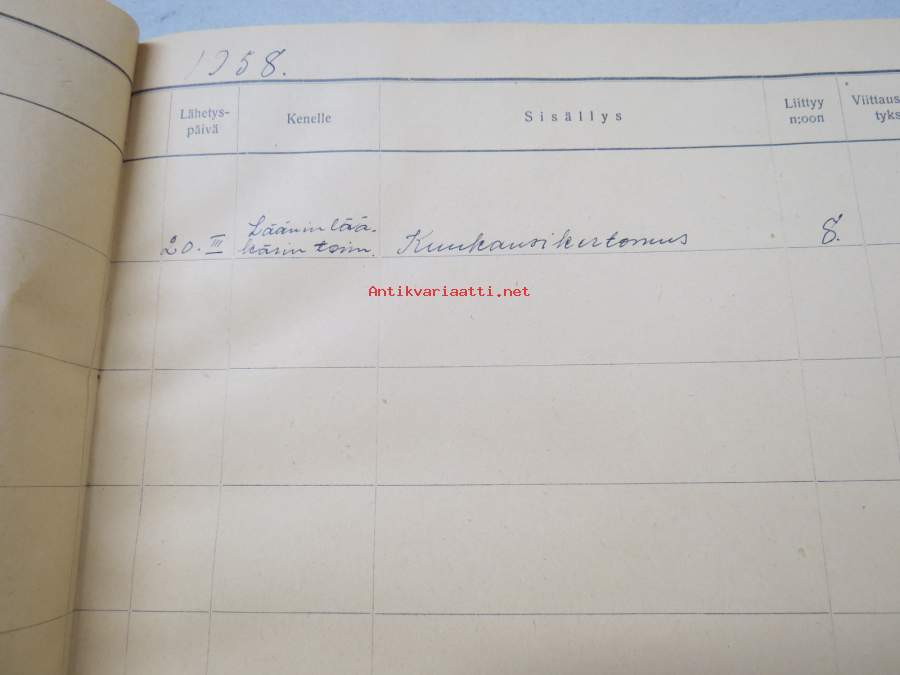 1958.
Lähetys-
päivä
Kenelle
Sisällys
Liittyy
n:oon
Viittaus
tyks
20. III
Läänin lää-
kärin toim.
Kuukausikertomus
8.
Antikvariaatti.net